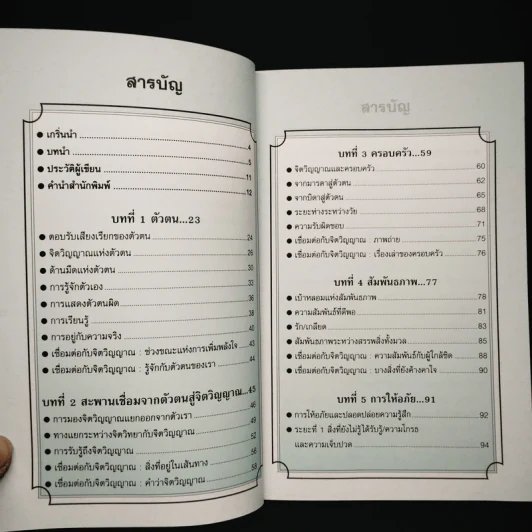 สารบัญ
● เกริ่นนำ 4
● บทนำ 5
● ประวัติผู้เขียน 11
● คำนำสำนักพิมพ์ 12
บทที่ 1 ตัวตน...23
● ตอบรับเสียงเรียกของตัวตน 24
● จิตวิญญาณแห่งตัวตน 26
● ด้านมืดแห่งตัวตน 30
● การรู้จักตัวเอง 33
● การแสดงตัวตนผิด 36
● การเรียนรู้ 38
● การอยู่กับความจริง 40
● เชื่อมต่อกับจิตวิญญาณ : ช่วงขณะแห่งการเพิ่มพลังใจ 43
● เชื่อมต่อกับจิตวิญญาณ : รู้จักกับตัวตนของเรา 44
บทที่ 2 สะพานเชื่อมจากตัวตนสู่จิตวิญญาณ...45
● การมองจิตวิญญาณแยกออกจากตัวเรา 46
● ทางแยกระหว่างจิตวิทยากับจิตวิญญาณ 49
● การรับรู้ถึงจิตวิญญาณ 52
● เชื่อมต่อกับจิตวิญญาณ : สิ่งที่อยู่ในเส้นทาง 56
● เชื่อมต่อกับจิตวิญญาณ : คำว่าจิตวิญญาณ 58
สารบัญ
บทที่ 3 ครอบครัว...59
● จิตวิญญาณและครอบครัว 60
● จากมารดาสู่ตัวตน 62
● จากบิดาสู่ตัวตน 65
● ระยะห่างระหว่างวัย 68
● ความรับผิดชอบ 71
● เชื่อมต่อกับจิตวิญญาณ : ภาพถ่าย 75
● เชื่อมต่อกับจิตวิญญาณ : เรื่องเล่าของครอบครัว 76
บทที่ 4 สัมพันธภาพ...77
● เบ้าหลอมแห่งสัมพันธภาพ 78
● ความสัมพันธ์ที่ดีพอ 81
● รัก/เกลียด 83
● สัมพันธภาพระหว่างสรรพสิ่งทั้งมวล 85
● เชื่อมต่อกับจิตวิญญาณ : ความสัมพันธ์กับผู้ใกล้ชิด 88
● เชื่อมต่อกับจิตวิญญาณ : บางสิ่งที่ยังค้างคาใจ 90
บทที่ 5 การให้อภัย...91
● การให้อภัยและปลดปล่อยความรู้สึก 92
● ระยะที่ 1 สิ่งที่ยังไม่รู้ได้รับรู้/ความโกรธ
และความเจ็บปวด 94